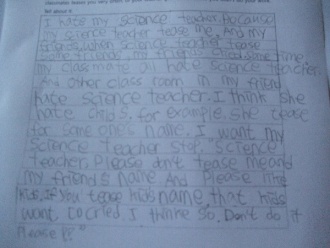 Tell about it.
I hate my science teacher. Because
my science teacher tease me. And my
friends, when science teacher tease
some time,
my classmates all hate science teacher.
And other class room in my friend
hate science teacher. I think she
hate child's. for example. She tease
for some one's name. I want my
science teacher stop. Science
teacher, Please don't tease me and
my friend's name And Please like
kids. If you tease kids name, that kids
want to cried. I think so. Don't do it
Please!!"